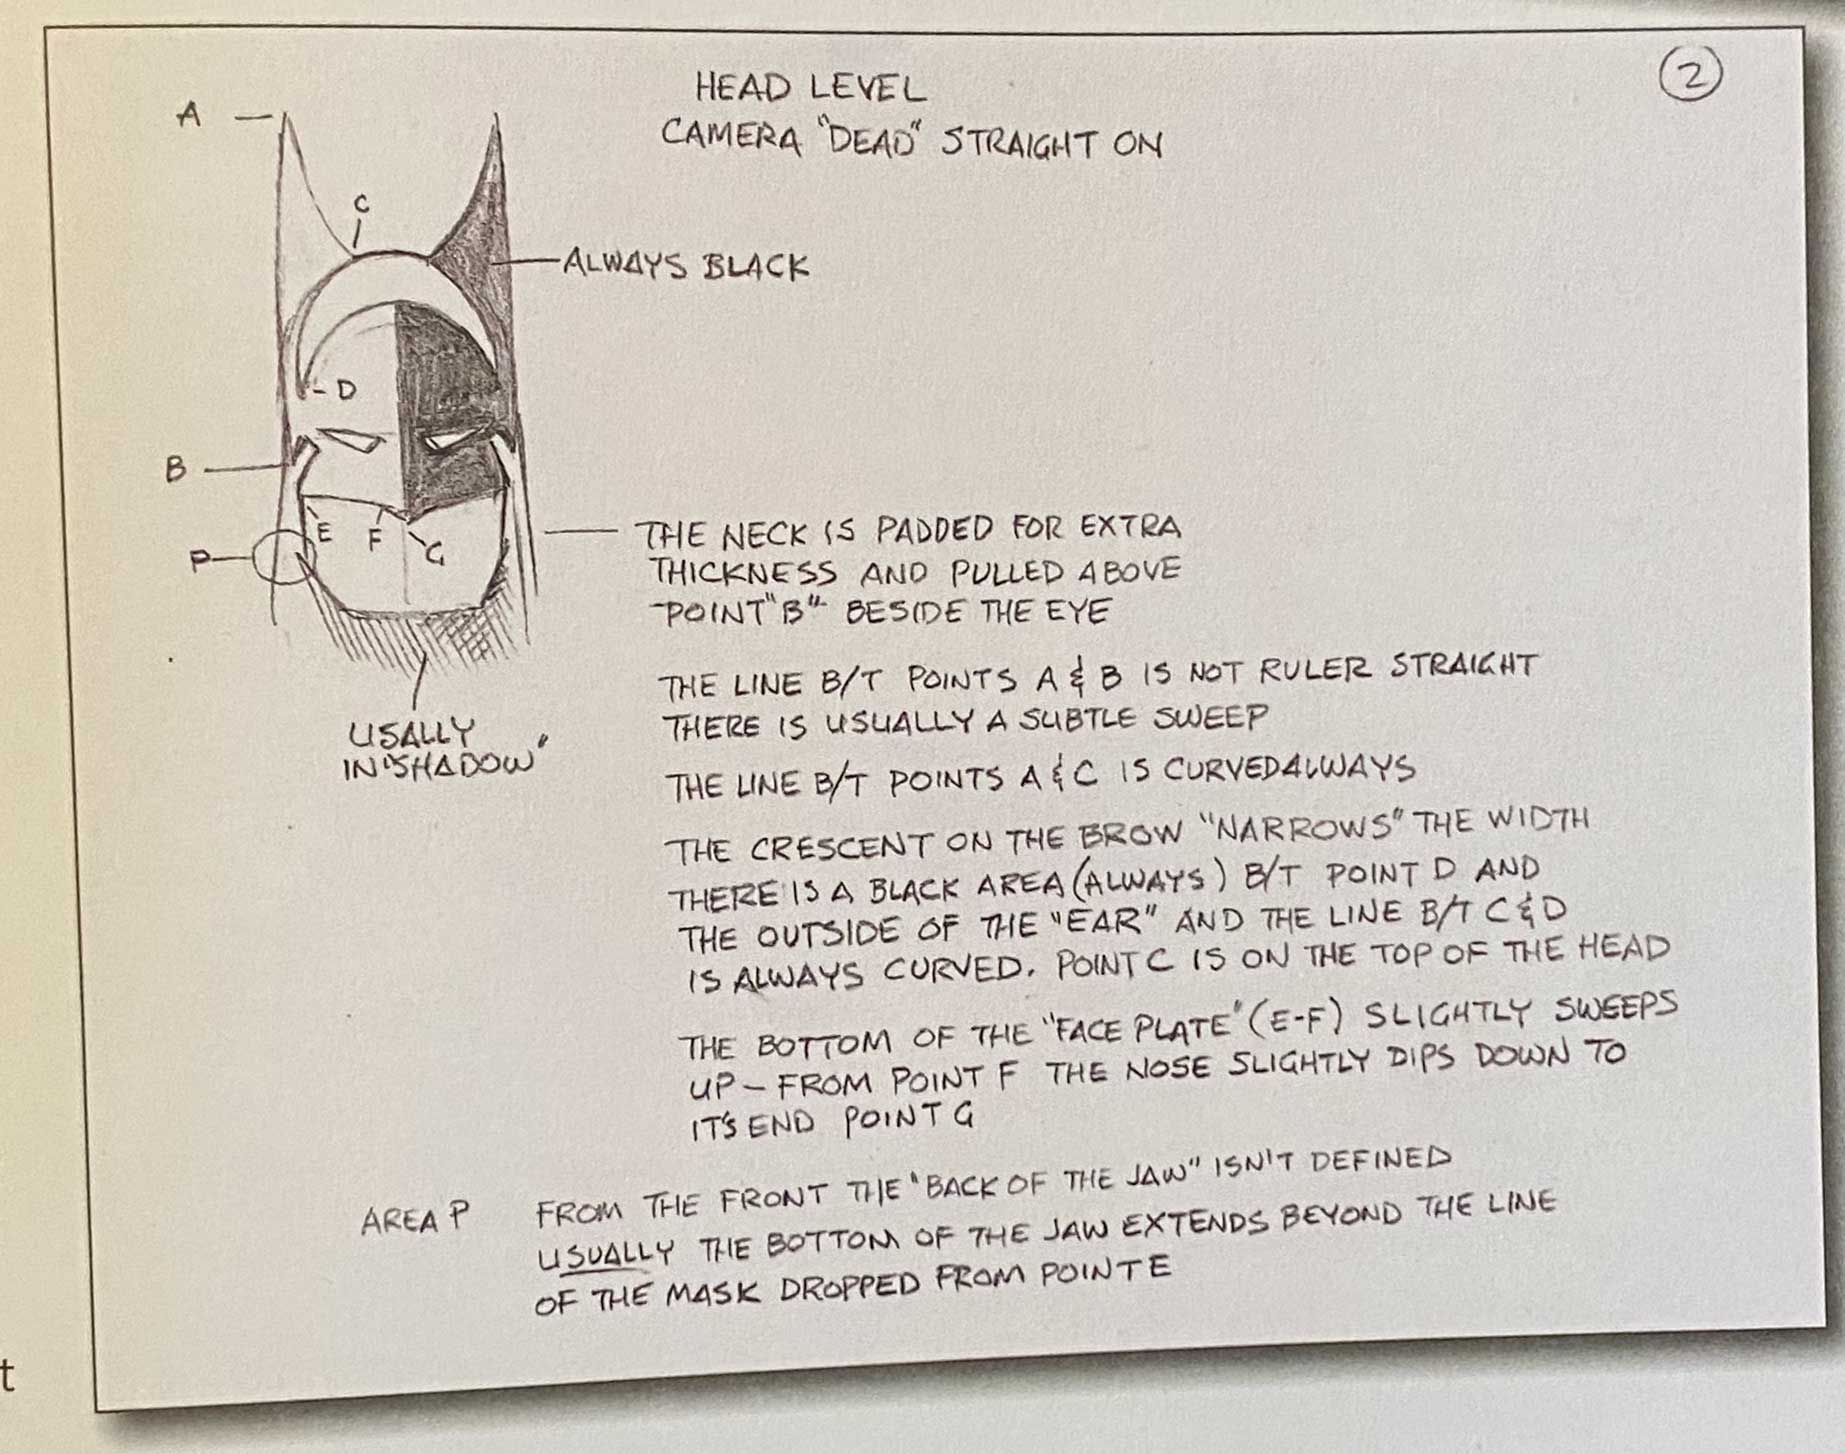 2
HEAD LEVEL
CAMERA "DEAD" STRAIGHT ON
A
C
ALWAYS BLACK
D
B
E
F
G
P
THE NECK IS PADDED FOR EXTRA
THICKNESS AND PULLED ABOVE
POINT "B" BESIDE THE EYE
THE LINE B/T POINTS A & B IS NOT RULER STRAIGHT
THERE IS USUALLY A SUBTLE SWEEP
USALLY
IN "SHADOW"
THE LINE B/T POINTS A & C IS CURVED ALWAYS
THE CRESCENT ON THE BROW "NARROWS" THE WIDTH
THERE IS A BLACK AREA (ALWAYS) B/T POINT D AND
THE OUTSIDE OF THE "EAR" AND THE LINE B/T C & D
IS ALWAYS CURVED. POINT C IS ON THE TOP OF THE HEAD
THE BOTTOM OF THE "FACE PLATE" (E-F) SLIGHTLY SWEEPS
UP - FROM POINT F THE NOSE SLIGHTLY DIPS DOWN TO
IT'S END POINT G
AREA P FROM THE FRONT THE "BACK OF THE JAW" ISN'T DEFINED
USUALLY THE BOTTOM OF THE JAW EXTENDS BEYOND THE LINE
OF THE MASK DROPPED FROM POINT E
t